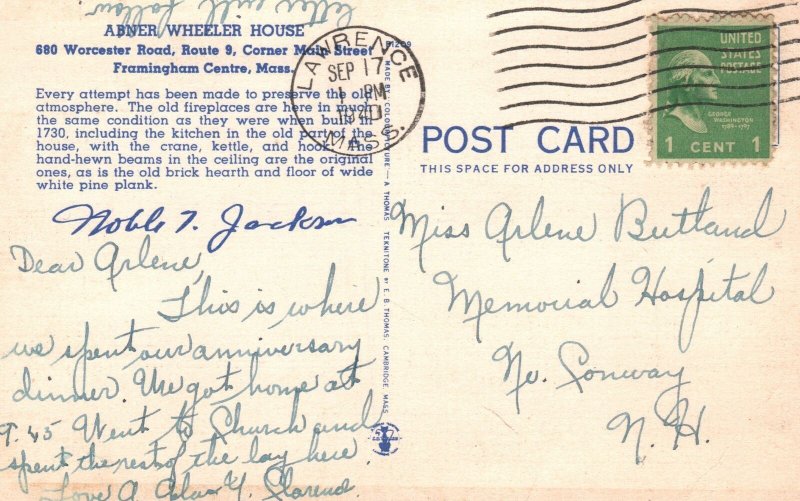 letter will follow
ABNER WHEELER HOUSE
680 Worcester Road, Route 9, Corner Main Street
Framingham Centre, Mass.
Every attempt has been made to preserve the old
atmosphere. The old fireplaces are here in much
the same condition as they were when built in
1730, including the kitchen in the old part of the
house, with the crane, kettle, and hook. The
hand-hewn beams in the ceiling are the original
ones, as is the old brick hearth and floor of wide
white pine plank.
Noble T. Jackson
Dear Arlene,
This is where
we spent our anniversary
dinner. We got home at
9.45 Went to Church and
spent the rest of the day here
Love
LAWRENCE
SEP 17
1 PM
1940
MASS.
MADE BY COLORPICTURE — A THOMAS TEKNITONE BY E. B. THOMAS, CAMBRIDGE, MASS.
POST CARD
THIS SPACE FOR ADDRESS ONLY
UNITED
STATES
POSTAGE
GEORGE
WASHINGTON
1789-1797
1 CENT 1
Miss Arlene Butland
Memorial Hospital
No. Conway
N. H.